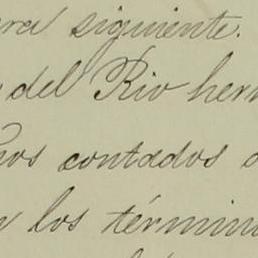 era siguiente.
del Rio herm
nos contados
los término